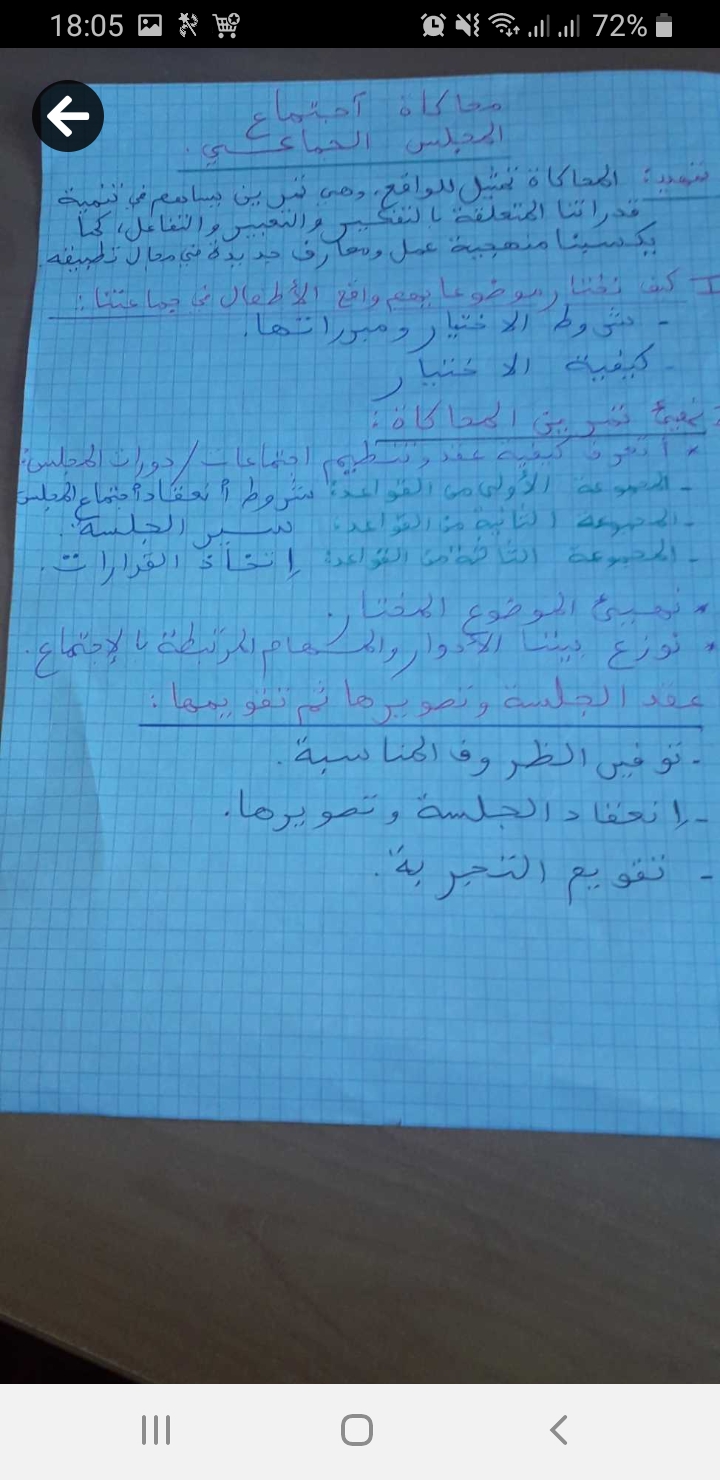 18:05 72%
محاكاة آجتماع
المجلس الجماعي.
تمهيد: المحاكاة تمثيل للواقع، وهي تمرين يساهم في تنمية
قدراتنا المتعلقة بالتفكير والتعبير والتفاعل، كما
يكسبنا منهجية عمل ومعارف جديدة في مجال تطبيقه.
I كيف نختار موضوعا يهم واقع الأطفال في جماعتنا:
- شروط الاختيار ومبرراتها.
- كيفية الاختيار
تهيئ تمرين المحاكاة:
* أتعرف كيفية عقد وتنظيم اجتماعات/دورات المجلس:
- المجموعة الأولى من القواعد: شروط أنعقاد أجتماع المجلس
- المجموعة الثانية من القواعد: سير الجلسة.
- المجموعة الثالثة من القواعد: إتخاذ القرارات.
* نهيئ الموضوع المختار.
* نوزع بيننا الأدوار والمهام المرتبطة بالإجتماع.
عقد الجلسة وتصويرها ثم تقويمها:
- توفير الظروف المناسبة.
- إنعقاد الجلسة وتصويرها.
- تقويم التجربة.